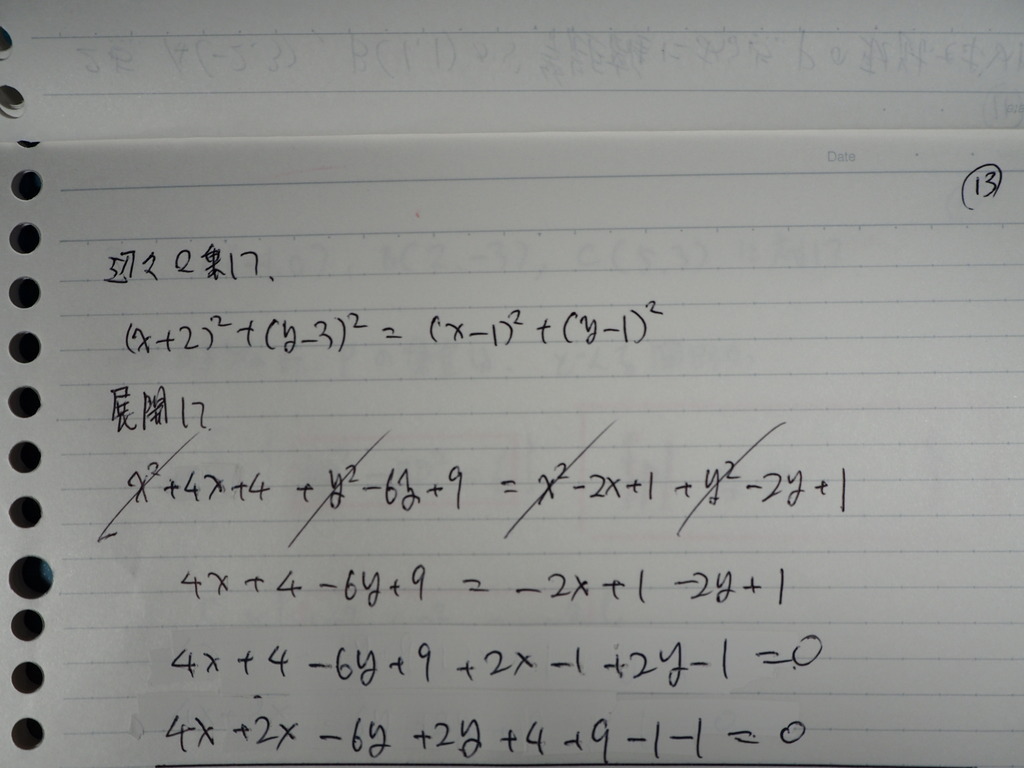 Date
13
辺々2乗して
(x+2)²+(y-3)² = (x-1)²+(y-1)²
展開して
x²+4x+4 +y²-6y+9 = x²-2x+1 +y²-2y+1
4x+4-6y+9 = -2x+1 -2y+1
4x+4-6y+9 +2x-1 +2y-1 =0
4x+2x-6y+2y+4+9-1-1=0